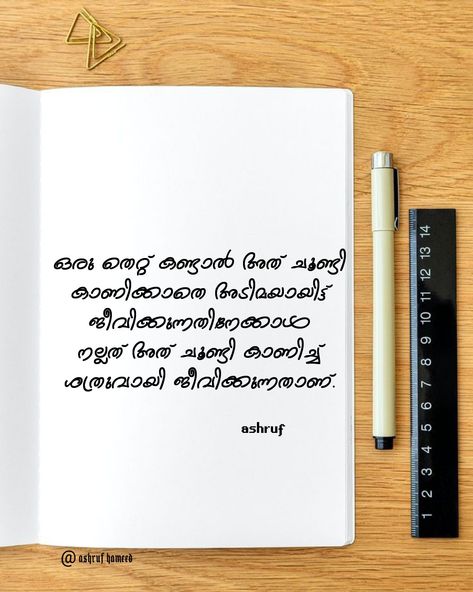 ഒരു തെറ്റ് കണ്ടാൽ അത് ചൂണ്ടി
കാണിക്കാതെ അടിമയായിട്ട്
ജീവിക്കുന്നതിനേക്കാൾ
നല്ലത് അത് ചൂണ്ടി കാണിച്ച്
ശത്രുവായി ജീവിക്കുന്നതാണ്.
ashruf
@ ashruf hameed
1 2 3 4 5 6 7 8 9 10 11 12 13 14